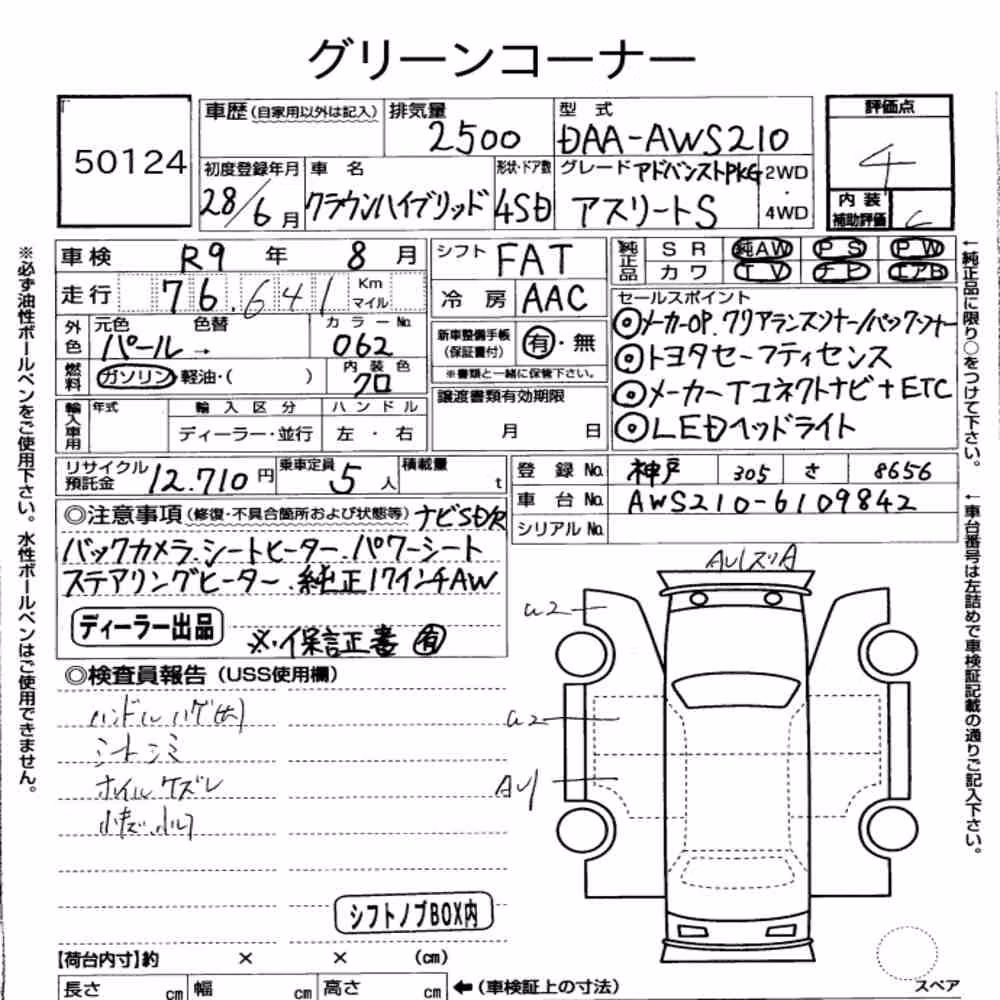 グリーンコーナー
50124
車歴(自家用以外は記入) 排気量 2500 型式 DAA-AWS210
初度登録年月 28/6月 車名 クラウンハイブリッド 形状・ドア数 4SD グレード アドバンストPKG アスリートS 2WD・4WD
評価点 4
内装補助評価 C
車検 R9年 8月
走行 76.641 Km マイル
シフト FAT
冷房 AAC
純正品 SR 純AW PS PW
カワ TV ナビ エアB
外色 元色 パール→ 色替 カラーNo. 062
燃料 ガソリン・軽油・( ) 内装色 クロ
新車整備手帳(保証書付) 有・無
※書類と一緒に保管下さい。
輸入車用 年式 輸入区分 ディーラー・並行 ハンドル 左・右
譲渡書類有効期限 月 日
セールスポイント
◎メーカーOP.クリアランスソナー/バックソナー
◎トヨタセーフティセンス
◎メーカーTコネクトナビ+ETC
◎LEDヘッドライト
リサイクル預託金 12.710円 乗車定員 5人 積載量 t
登録No. 神戸 305 さ 8656
車台No. AWS210-6109842
シリアルNo.
◎注意事項(修復・不具合箇所および状態等)ナビSD欠
バックカメラ.シートヒーター.パワーシート
ステアリングヒーター.純正17インチAW
ディーラー出品
※.保証書 有
◎検査員報告(USS使用欄)
ハンドルハゲ(大)
シートシミ
ホイルケズレ
小キズ.小凹
シフトノブBOX内
A2
A2
スペア
【荷台内寸】約 × × (cm)
長さ cm 幅 cm 高さ cm ←(車検証上の寸法)
※必ず油性ボールペンをご使用下さい。水性ボールペンはご使用できません。
←純正品に限り○をつけて下さい。
←車台番号は左詰めで車検証記載の通りご記入下さい。